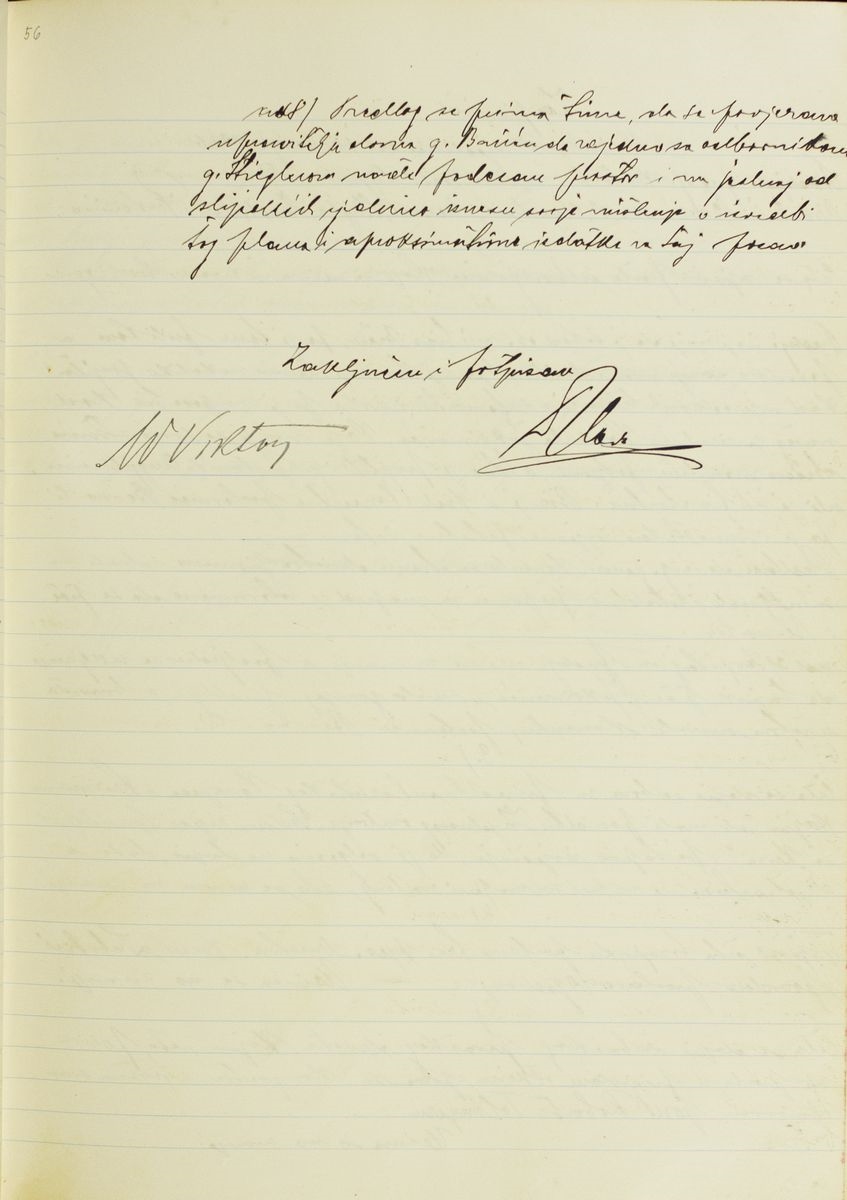 56
ad 8) Predlog se prima time, da se povjerava
upravitelju doma g. da zajedno sa odbornikom
g. Stieglerom nađe podesan prostor i na jednoj od
slijedećih sjednica iznesu svoje mišljenje o izvedbi
tog plana i aproksimativne izdatke za taj posao
Zaključeno i potpisano